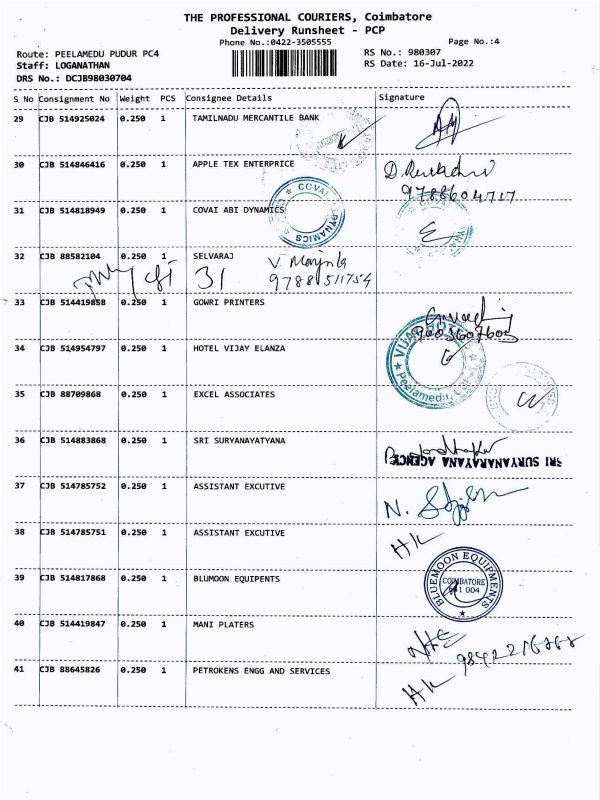 THE PROFESSIONAL COURIERS, Coimbatore
Delivery Runsheet - PCP
Phone No.:0422-3505555 Page No.:4
Route: PEELAMEDU PUDUR PC4 RS No.: 980307
Staff: LOGANATHAN RS Date: 16-Jul-2022
DRS No.: DCJB98030704
S No Consignment No Weight PCS Consignee Details Signature
29 CJB 514925024 0.250 1 TAMILNADU MERCANTILE BANK
30 CJB 514846416 0.250 1 APPLE TEX ENTERPRICE
31 CJB 514818949 0.250 1 COVAI ABI DYNAMICS
COVAI
DYNAMICS
32 CJB 88582104 0.250 1 SELVARAJ
31
9788511754
33 CJB 514419858 0.250 1 GOWRI PRINTERS
34 CJB 514954797 0.250 1 HOTEL VIJAY ELANZA
Peelamedu
35 CJB 88709868 0.250 1 EXCEL ASSOCIATES
36 CJB 514883868 0.250 1 SRI SURYANAYATYANA
SRI SURYANARAYANA AGENCY
37 CJB 514785752 0.250 1 ASSISTANT EXCUTIVE
38 CJB 514785751 0.250 1 ASSISTANT EXCUTIVE
39 CJB 514817868 0.250 1 BLUMOON EQUIPENTS
BLUEMOON EQUIPMENTS
COIMBATORE
40 CJB 514419847 0.250 1 MANI PLATERS
41 CJB 88645826 0.250 1 PETROKENS ENGG AND SERVICES